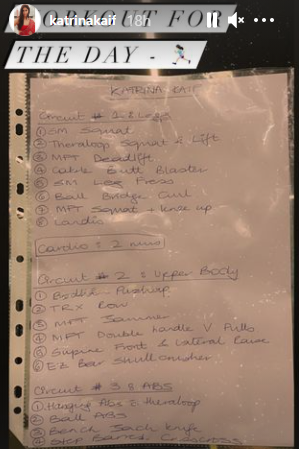 katrinakaif 18h
WORKOUT FOR
THE DAY -
KATRINA KAIF
Circuit # 1 : Legs
① SM Squat
② Theraloop Squat & Lift
③ MPT Deadlift
④ Cable Butt Blaster
⑤ SM Leg Press
⑥ Ball Bridge Curl
⑦ MPT Squat + knee up
⑧ Cardio
Cardio : 2 mins
Circuit # 2 : Upper Body
① Pushup
② TRX Row
③ MPT Jammer
④ MPT Double Handle V Pulls
⑤ Supine Front & Lateral Raise
⑥ EZ Bar Skullcrusher
Circuit # 3 : ABS
① Hanging Abs & theraloop
② Ball ABS
③ Bench Jack knife
④ Step Bench Crisscross